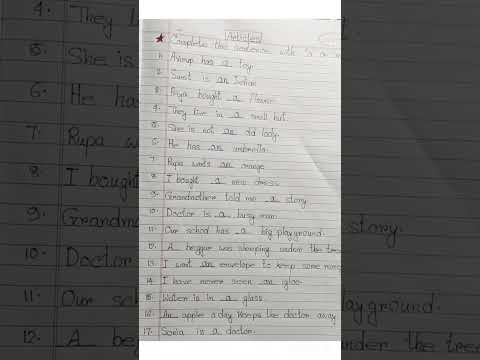 Articles
★ Complete the sentence with a or an
1. Anup has a toy.
2. Sumit is an Indian.
3. Priya bought a flower.
4. They live in a small hut.
5. She is not an old lady.
6. He has an umbrella.
7. Rupa wants an orange.
8. I bought a new dress.
9. Grandmother told me a story.
10. Doctor is a busy man.
11. Our school has a big playground.
12. A beggar was sleeping under the tree
13. I want an envelope to keep some money
14. I have never seen an igloo.
15. Water is in a glass.
16. An apple a day keeps the doctor away
17. Sonia is a doctor.